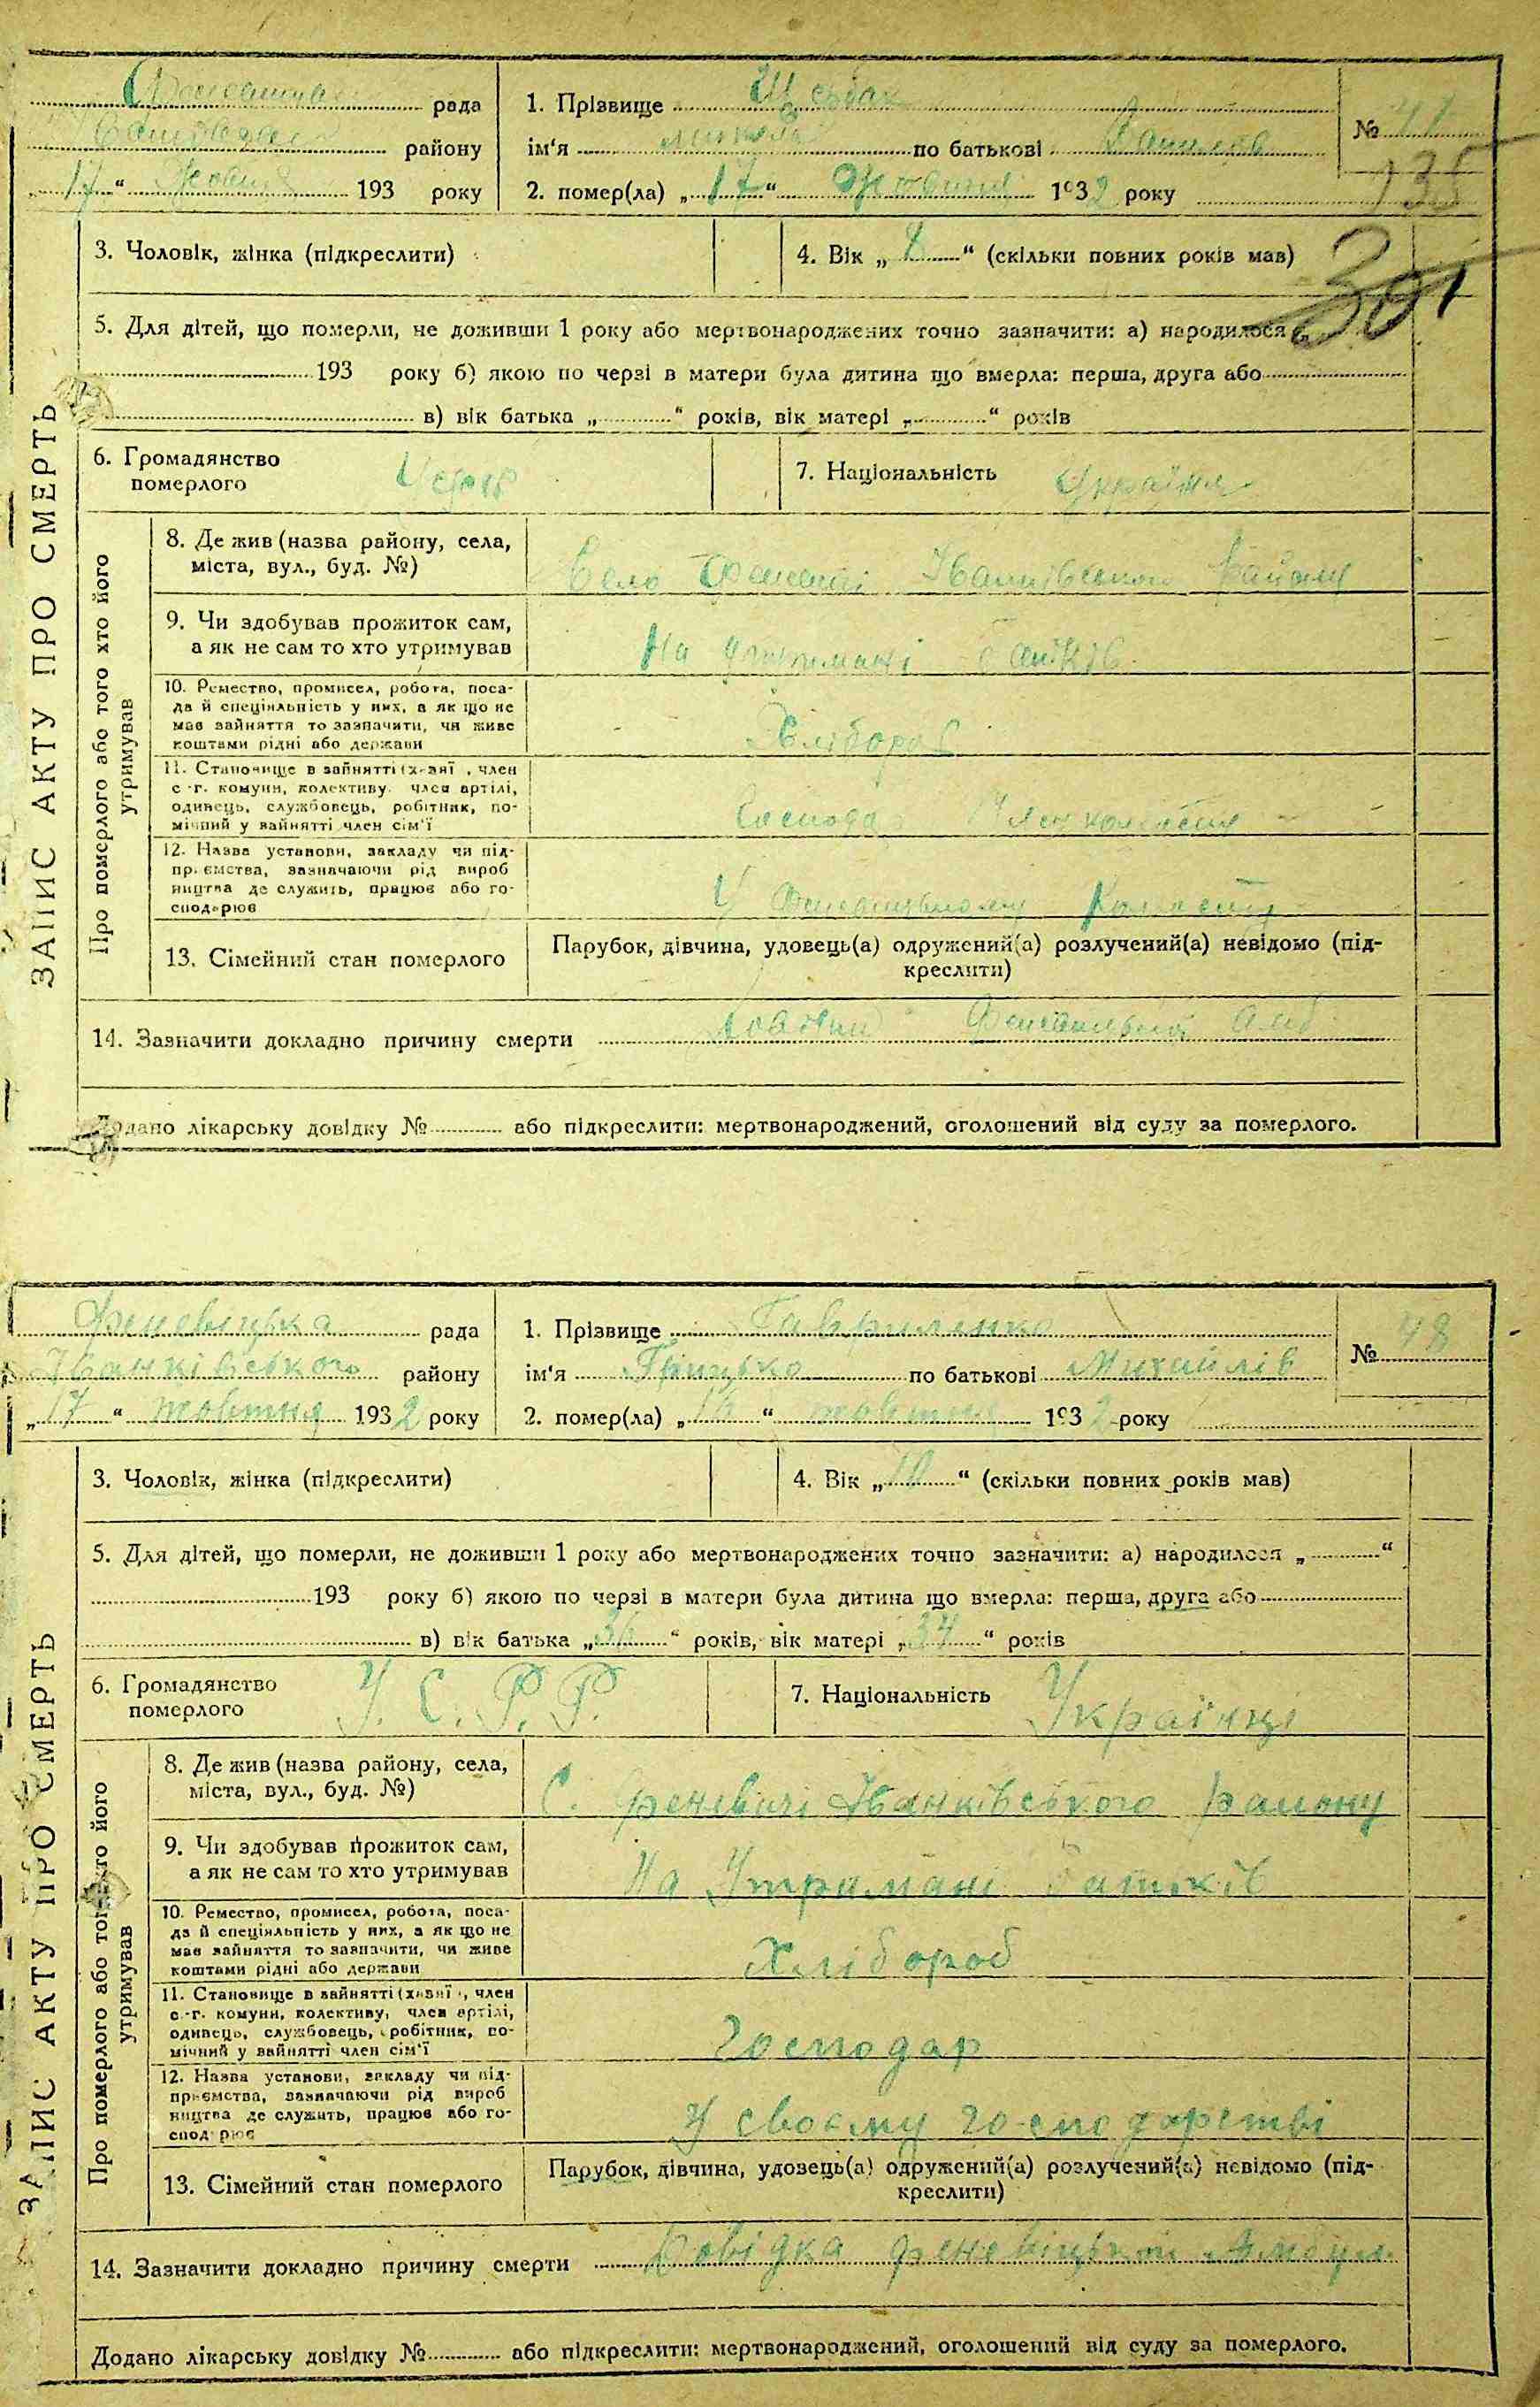 рада
району
„ 17 “ Жовтня 193 року
1. Прізвище
ім'я по батькові
2. помер(ла) „ 17 “ Жовтня 1932 року
№ 47
135
301
ЗАПИС АКТУ ПРО СМЕРТЬ
3. Чоловік, жінка (підкреслити)
4. Вік „ “ (скільки повних років мав)
5. Для дітей, що померли, не доживши 1 року або мертвонароджених точно зазначити: а) народилося „
193 року б) якою по черзі в матери була дитина що вмерла: перша, друга або
в) вік батька „ “ років, вік матері „ “ років
6. Громадянство
померлого
7. Національність
Про померлого або того хто його
утримував
8. Де жив (назва району, села,
міста, вул., буд. №)
Село району
9. Чи здобував прожиток сам,
а як не сам то хто утримував
На утримані батьків
10. Ремество, промисел, робота, поса-
да й спеціяльність у них, а як що не
мав зайняття то зазначити, чи живе
коштами рідні або держави
Хлібороб
11. Становище в зайнятті (хазяї, член
с.-г. комуни, колективу, член артілі,
одинець, службовець, робітник, по-
мічний у зайнятті член сім'ї
Господар
12. Назва установи, закладу чи під-
приємства, зазначаючи рід вироб
ництва де служить, працює або го-
сподарює
У
13. Сімейний стан померлого
Парубок, дівчина, удовець(а) одружений(а) розлучений(а) невідомо (під-
креслити)
14. Зазначити докладно причину смерти
Додано лікарську довідку № або підкреслити: мертвонароджений, оголошений від суду за померлого.
Феневіцька рада
Іванківського району
„ 17 “ жовтня 1932 року
1. Прізвище Гавриленко
ім'я Грицько по батькові Михайлів
2. помер(ла) „ 16 “ жовтня 1932 року
№ 48
ЗАПИС АКТУ ПРО СМЕРТЬ
3. Чоловік, жінка (підкреслити)
4. Вік „ 10 “ (скільки повних років мав)
5. Для дітей, що померли, не доживши 1 року або мертвонароджених точно зазначити: а) народилося „ “
193 року б) якою по черзі в матери була дитина що вмерла: перша, друга або
в) вік батька „ 36 “ років, вік матері „ 34 “ років
6. Громадянство
померлого
У. С. Р. Р.
7. Національність Українці
Про померлого або того хто його
утримував
8. Де жив (назва району, села,
міста, вул., буд. №)
С. Феневичі Іванківського району
9. Чи здобував прожиток сам,
а як не сам то хто утримував
На Утримані батьків
10. Ремество, промисел, робота, поса-
да й спеціяльність у них, а як що не
мав зайняття то зазначити, чи живе
коштами рідні або держави
Хлібороб
11. Становище в зайнятті (хазяї, член
с.-г. комуни, колективу, член артілі,
одинець, службовець, робітник, по-
мічний у зайнятті член сім'ї
Господар
12. Назва установи, закладу чи під-
приємства, зазначаючи рід вироб
ництва де служить, працює або го-
сподарює
У своєму господарстві
13. Сімейний стан померлого
Парубок, дівчина, удовець(а) одружений(а) розлучений(а) невідомо (під-
креслити)
14. Зазначити докладно причину смерти Довідка Феневіцької Амбул.
Додано лікарську довідку № або підкреслити: мертвонароджений, оголошений від суду за померлого.